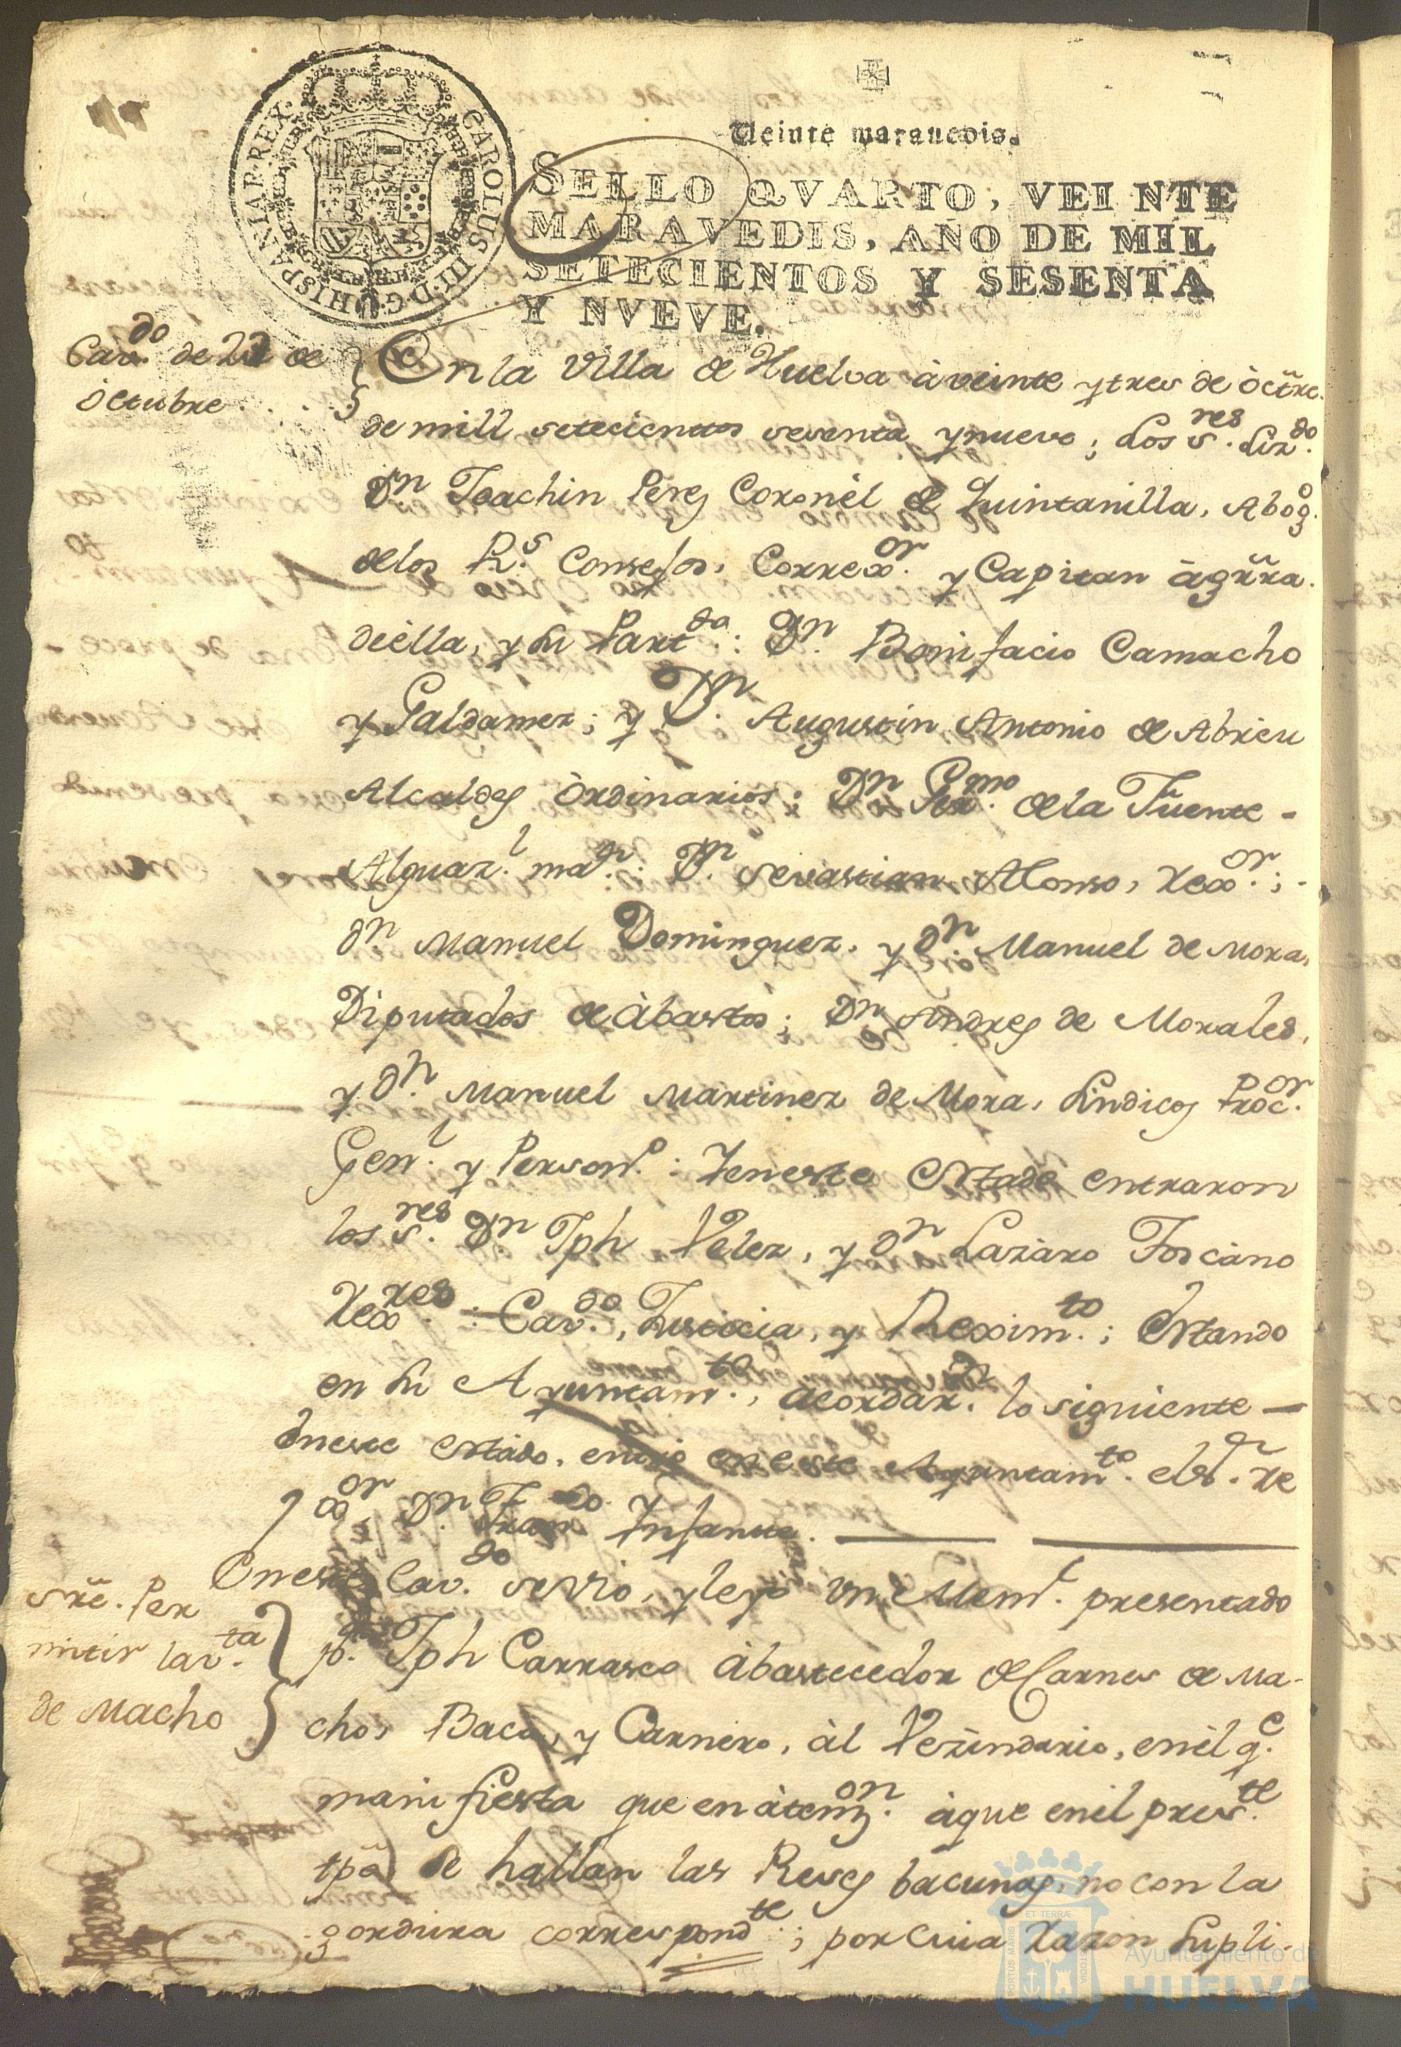 CAROLUS III·D·G·HISPANIAR·REX·
Veinte maravedis.
SELLO QVARTO, VEINTE
MARAVEDIS, AÑO DE MIL
SETECIENTOS Y SESENTA
Y NVEVE.
Cav.do de 23 de
Octubre . . . .
En la Villa de Huelva à veinte y tres de òctre.
de mill setecientos sesenta y nueve; los S.res Liz.do
Dn Joachin Perez Coronèl de Quintanilla, Abog.o
de los R.s Consejos, Correx.or y Capitan àgrra.
de èlla, y su Part.do: Dn. Bonifacio Camacho
y Galdamez; y Dn. Augustin Antonio de Abreu
Alcaldes òrdinarios; Dn Germo. de la Fuente -
Alguaz.l ma.r: Dn. Sevastian Alonso, Rex.or; -
dn. Manuel Dominguez, y dn. Manuel de Mora,
Diputados de àbastos; Dn Andres de Morales,
y dn. Manuel Martinez de Mora, Sindicos Proc.or
Gen.l y Person.o: Y en este estado entraron
los S.res Dn Jph Velez, y dn Lazaro Toscano
Rex.res: Cav.do, Justicia, y Reximto.; Estando
en su Ayuntam.to, acordar.n lo siguiente —
En este estado, entrò en este Ayuntam.to el S.r Re
xor, Dn. Fran.co Infante.
En este Cav.do se vio, y leyò un Mem.l presentado
Sre. Per
mitir la v.ta
de Macho
pr. Jph Carrasco àbastecedor de Carnes de Ma-
cho, Baca, y Carnero, àl Vezindario, en èl q.e
manifiesta que en àtenz.on à que en èl pres.te
tpo. se hallan las Reses bacunas, no con la
gordura correspond.te; por cuia razon supli-
Ayuntamiento de
HUELVA